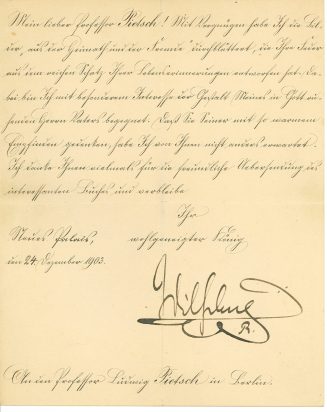 Mein lieber Professor Pietsch! Mit Vergnügen habe Ich die Bil-
der „aus der Heimath und der Fremde" durchblättert, die Ihre Feder
aus dem reichen Schatz Ihrer Lebenserinnerungen entworfen hat. Da-
bei bin Ich mit besonderem Interesse der Gestalt Meines in Gott ru-
henden Herrn Vaters begegnet. Daß Sie Seiner mit so warmem
Empfinden gedenken, habe Ich von Ihnen nicht anders erwartet.
Ich danke Ihnen vielmals für die freundliche Uebersendung des
interessanten Buches und verbleibe
Ihr
Neues Palais, wohlgeneigter König
den 24. Dezember 1903.
Wilhelm
R.
An den Professor Ludwig Pietsch in Berlin.